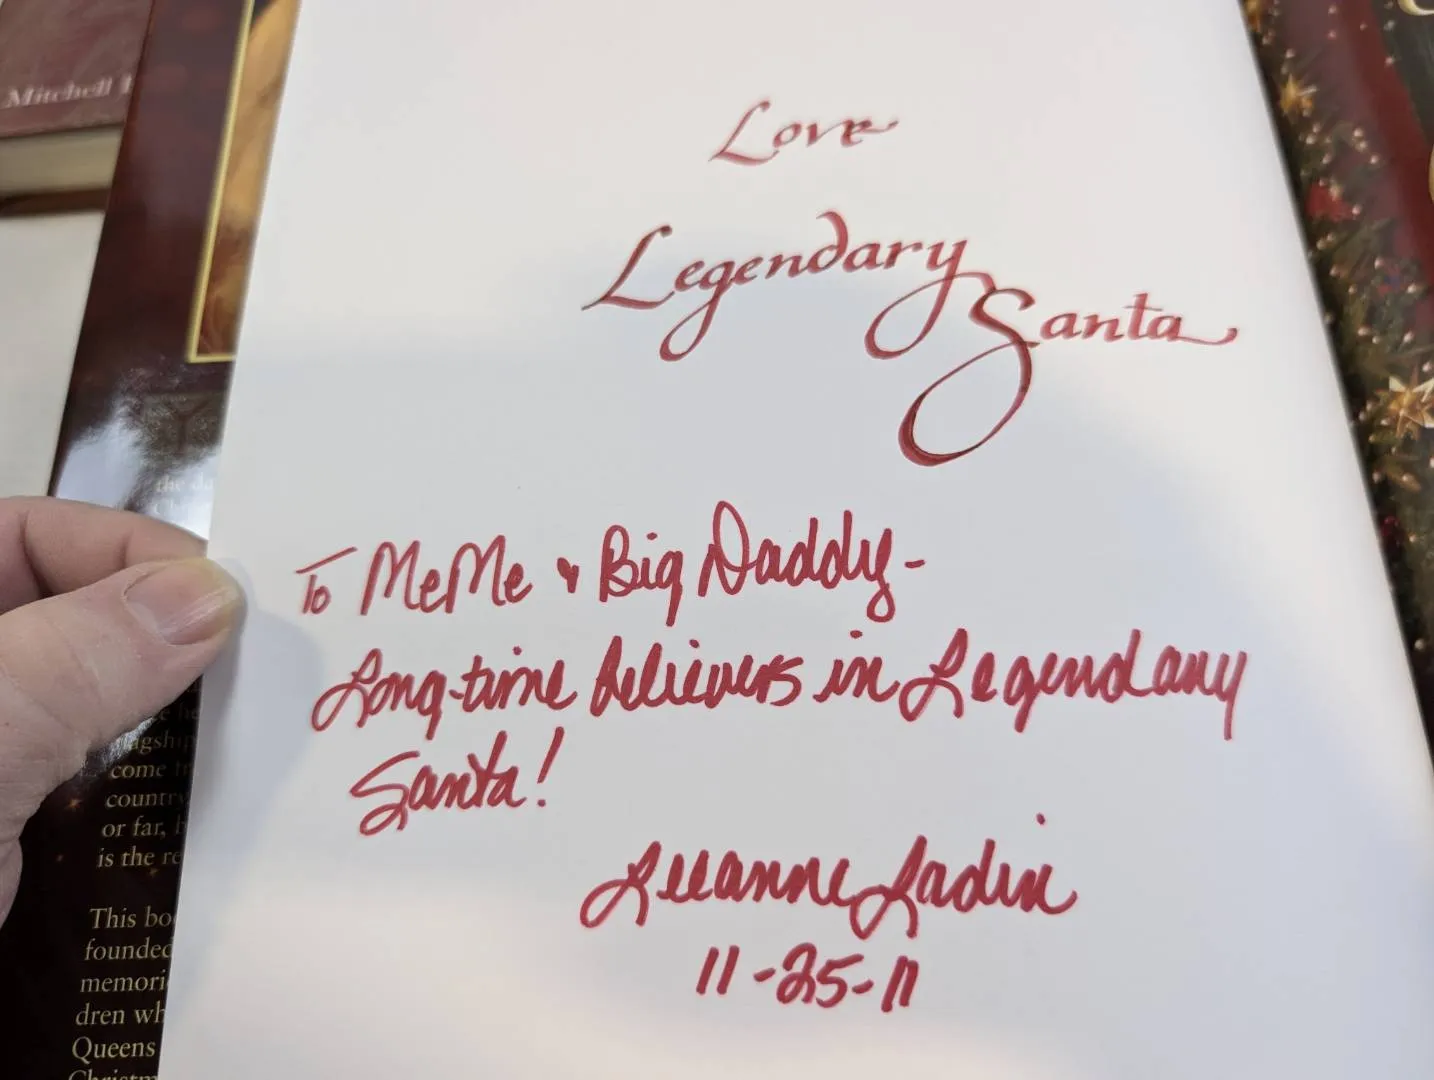 Mitchell
Love
Legendary
Santa
To MeMe & Big Daddy-
Long-time believers in Legendary
Santa!
Leeanne Ladin
11-25-11
the da
come
country
or far,
is the re
This bo
founded
memori
dren wh
Queens